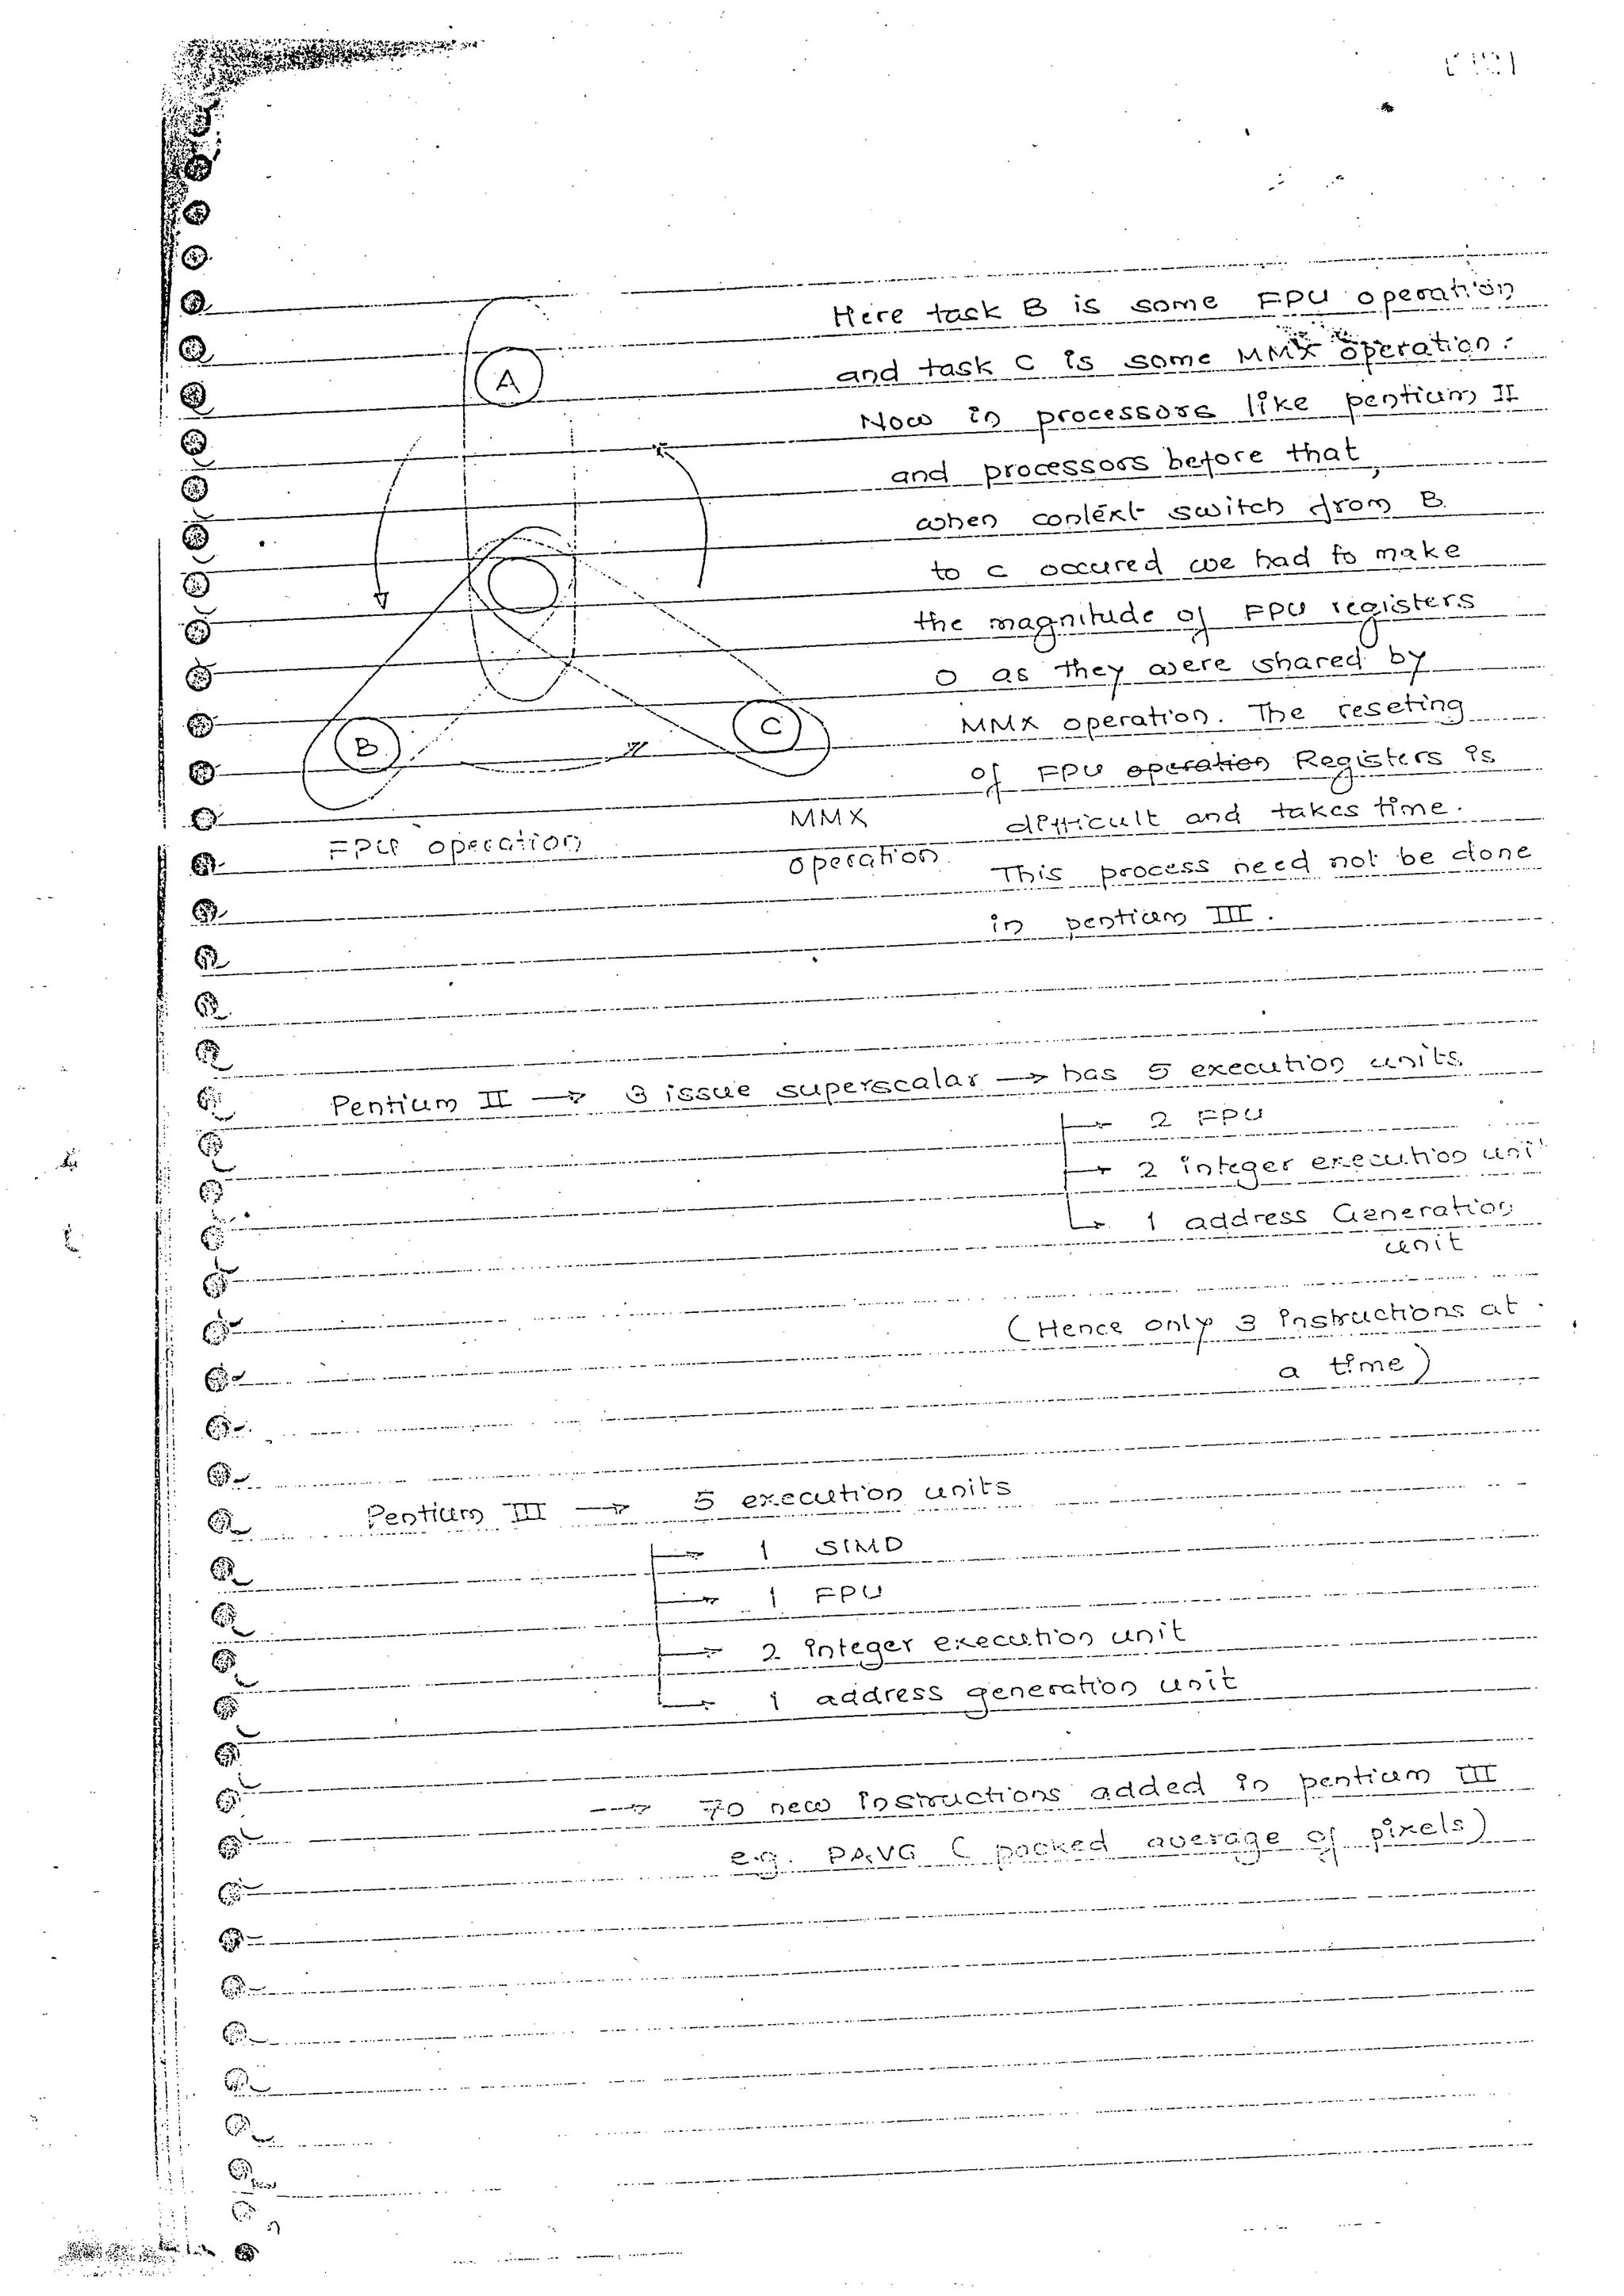 A
Here task B is some FPU operation
and task C is some MMX operation.
Now in processors like pentium II
and processors before that,
when context switch from B
to C occured we had to make
the magnitude of FPU registers
0 as they were shared by
MMX operation. The reseting
of FPU operation Registers is
difficult and takes time.
This process need not be done
in pentium III.
B
C
FPU operation
MMX
operation
Pentium II → 3 issue superscalar → has 5 execution units
→ 2 FPU
→ 2 integer execution unit
→ 1 address Generation
unit
(Hence only 3 instructions at
a time)
Pentium III → 5 execution units
→ 1 SIMD
→ 1 FPU
→ 2 integer execution unit
→ 1 address generation unit
→ 70 new instructions added in pentium III
e.g. PAVG (packed average of pixels)